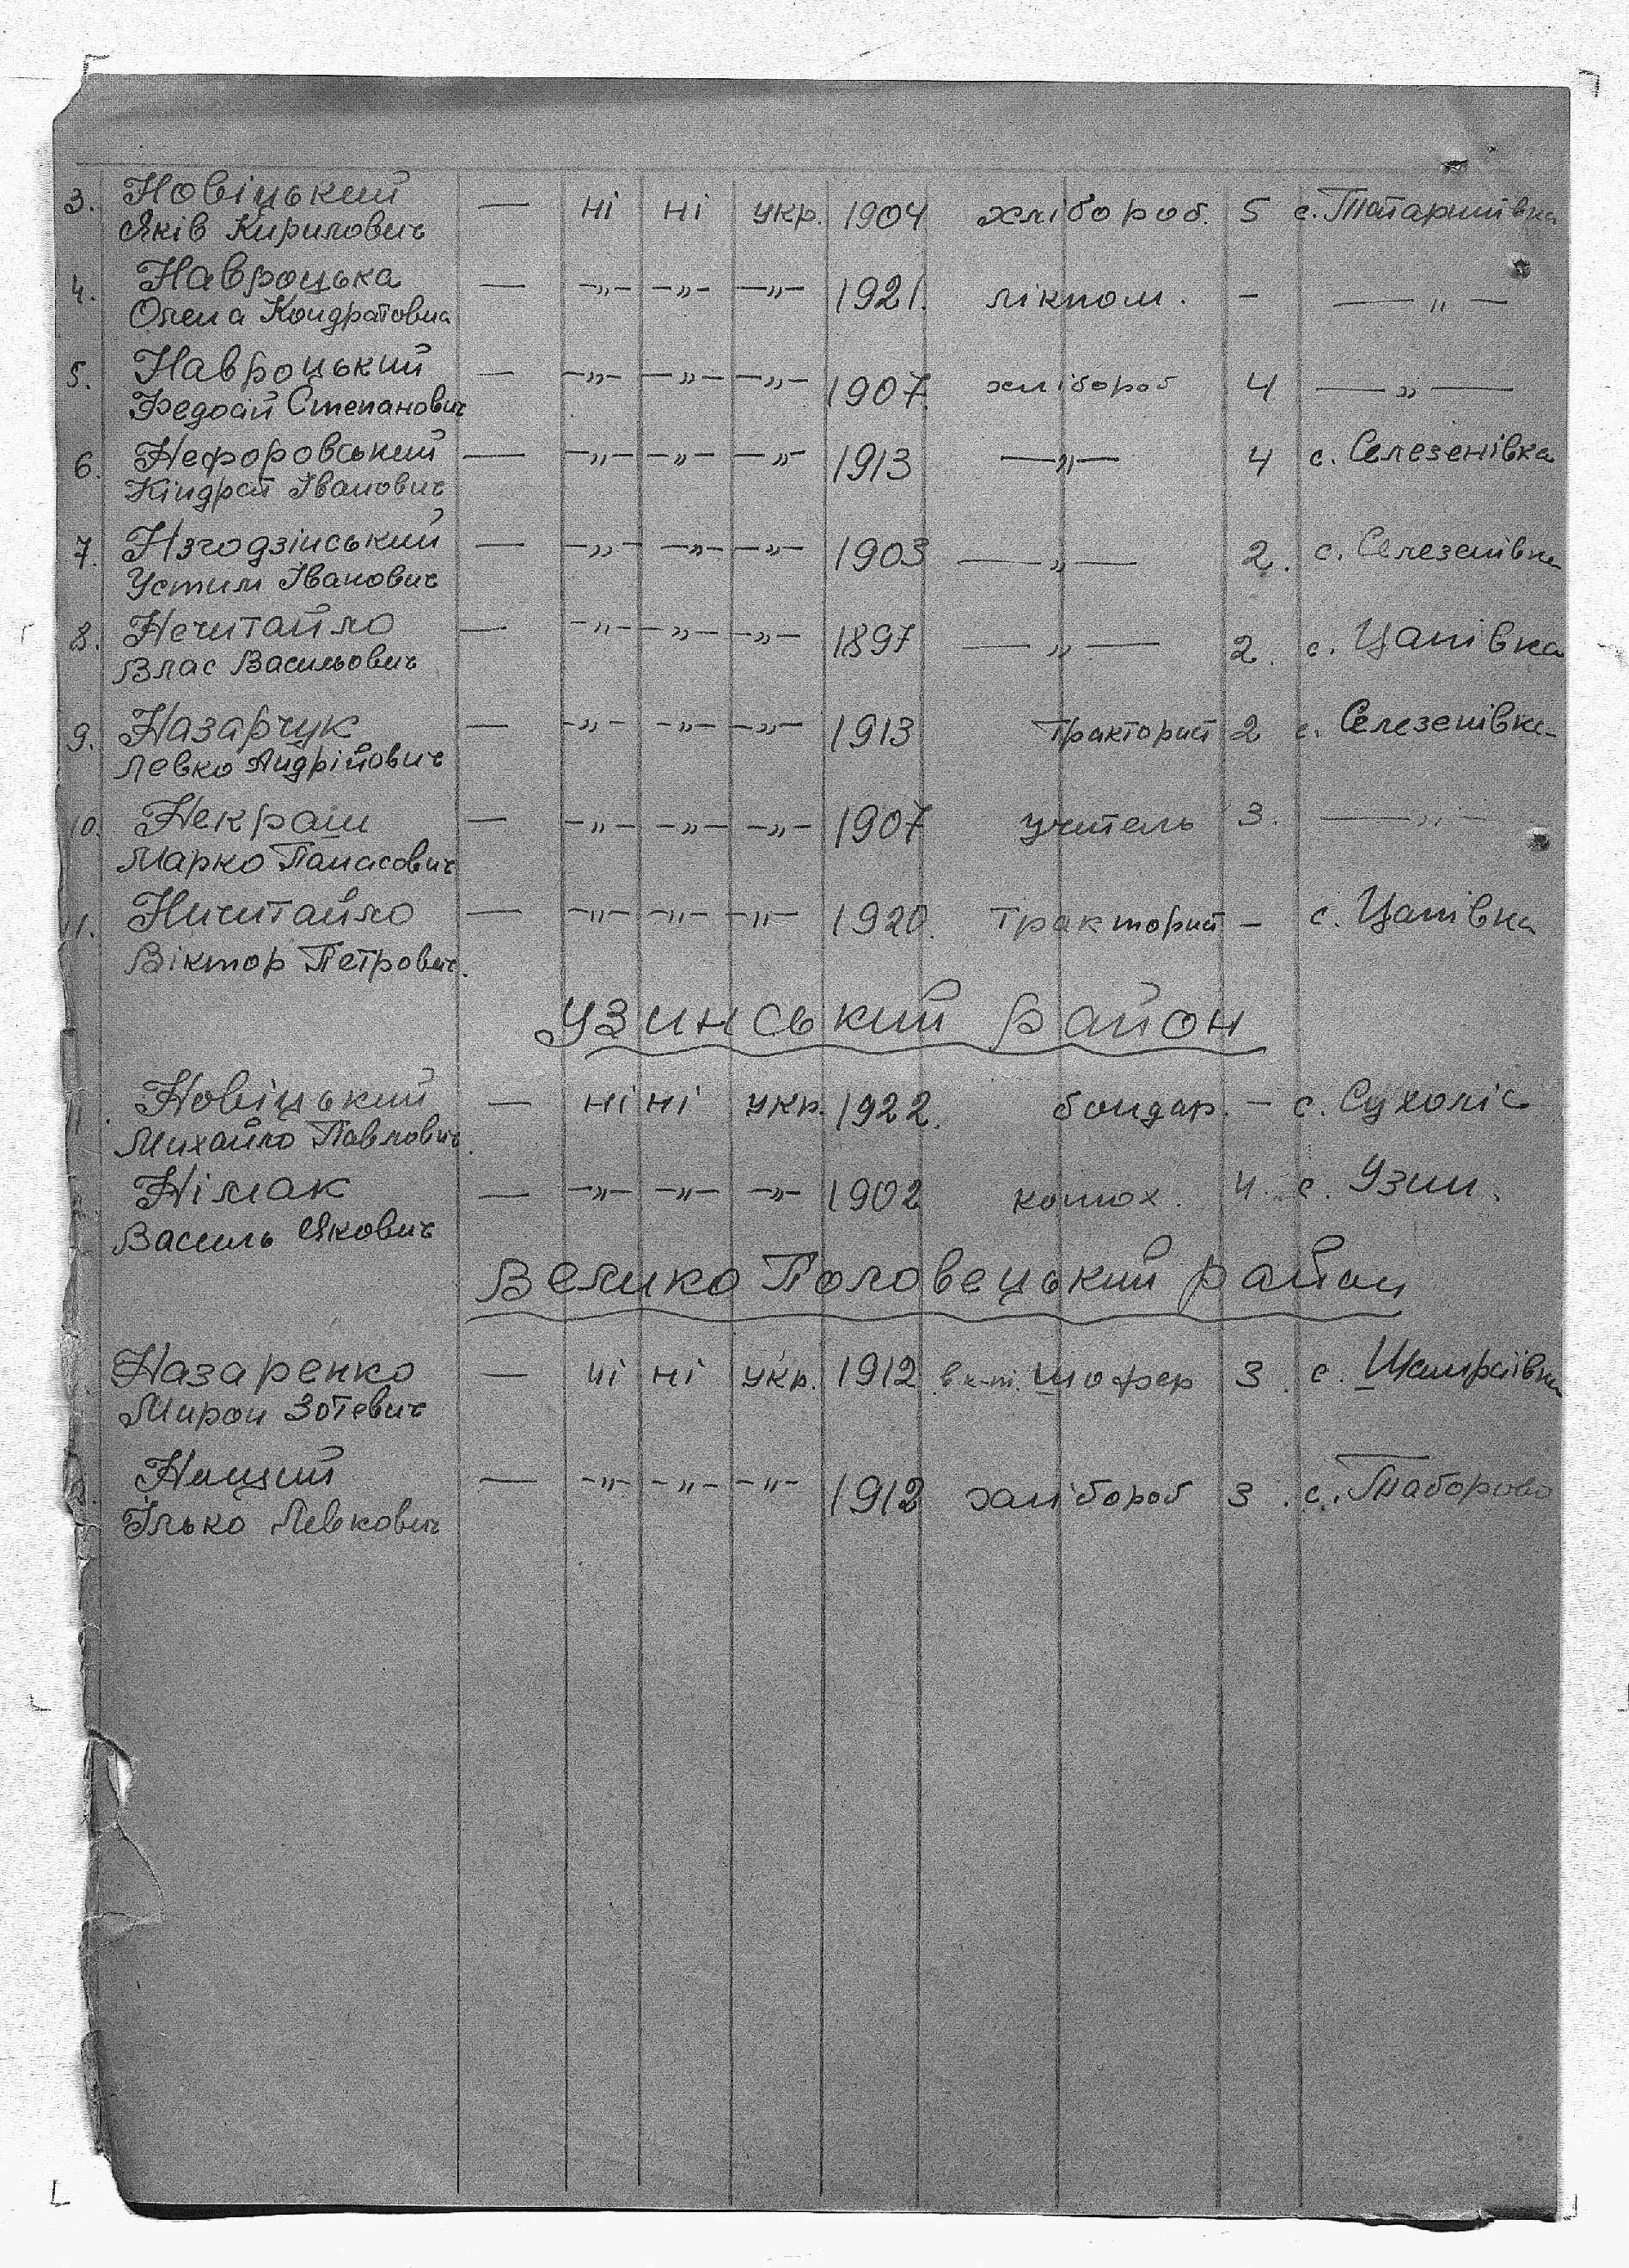 3. Новіцький — ні ні укр. 1904 хлібороб. 5 с.
Яків Кирилович
4. Навроцька — —„— —„— —„— 1921. лікпом. – —„—
Олена Кондратовна
5. Навроцький — —„— —„— —„— 1907. хлібороб 4 —„—
Федосій Степанович
6. Нефоровський — —„— —„— —„— 1913 —„— 4 с. Селезенівка
Кіндрат Іванович
7. Нзгодзінський — —„— —„— —„— 1903 —„— 2. с. Селезенівка
Устим Іванович
8. Нечитайло — —„— —„— —„— 1897 —„— 2. с. Цапівка
Влас Васильович
9. Назарчук — —„— —„— —„— 1913 тракторист 2 с. Селезенівка
Левко Андрійович
10. Некраш — —„— —„— —„— 1907 учитель 3. —„—
Марко Панасович
11. Ничитайло — —„— —„— —„— 1920. тракторист – с. Цапівка
Віктор Петрович.
Узинський район
1. Новіцький — ні ні укр. 1922. бондар. – с. Сухоліс
Михайло Павлович.
Німак — —„— —„— —„— 1902 конюх. 4. с. Узин.
Василь Якович
Велико Половецький район
Назаренко — ні ні укр. 1912 шофер 3. с. Шамраївка
Мирон Зотевич
— —„— —„— —„— 1912 хлібороб 3. с. Таборово
Ілько Левкович